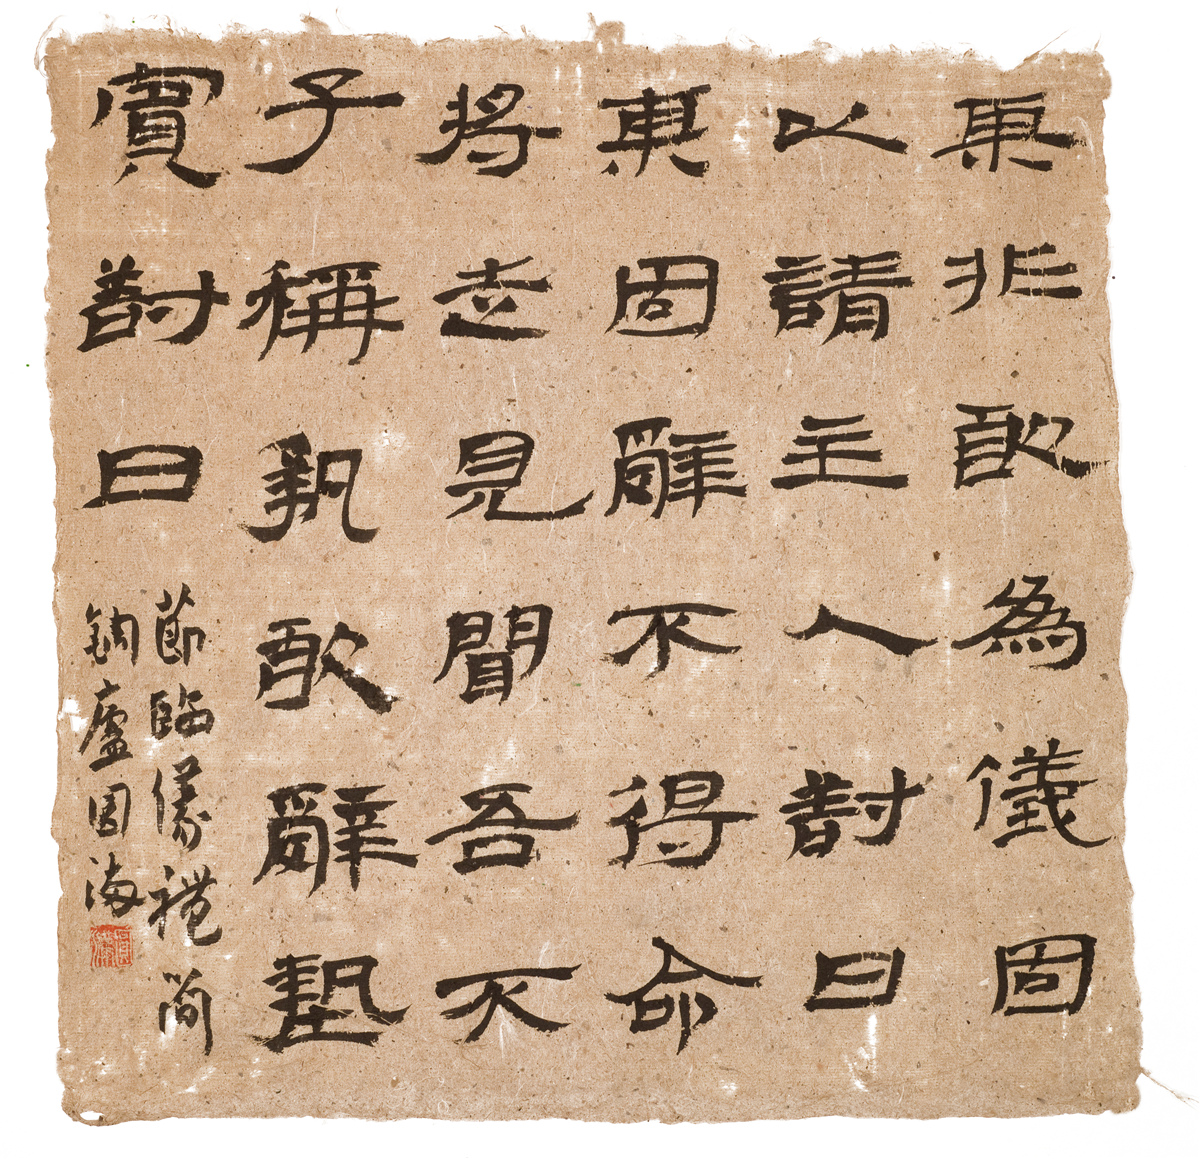 某非敢為儀固
以請主人對曰
某固辭不得命
將走見聞吾不
子稱執敢辭墊
賓對曰
節臨儀禮簡
鈞廬国海